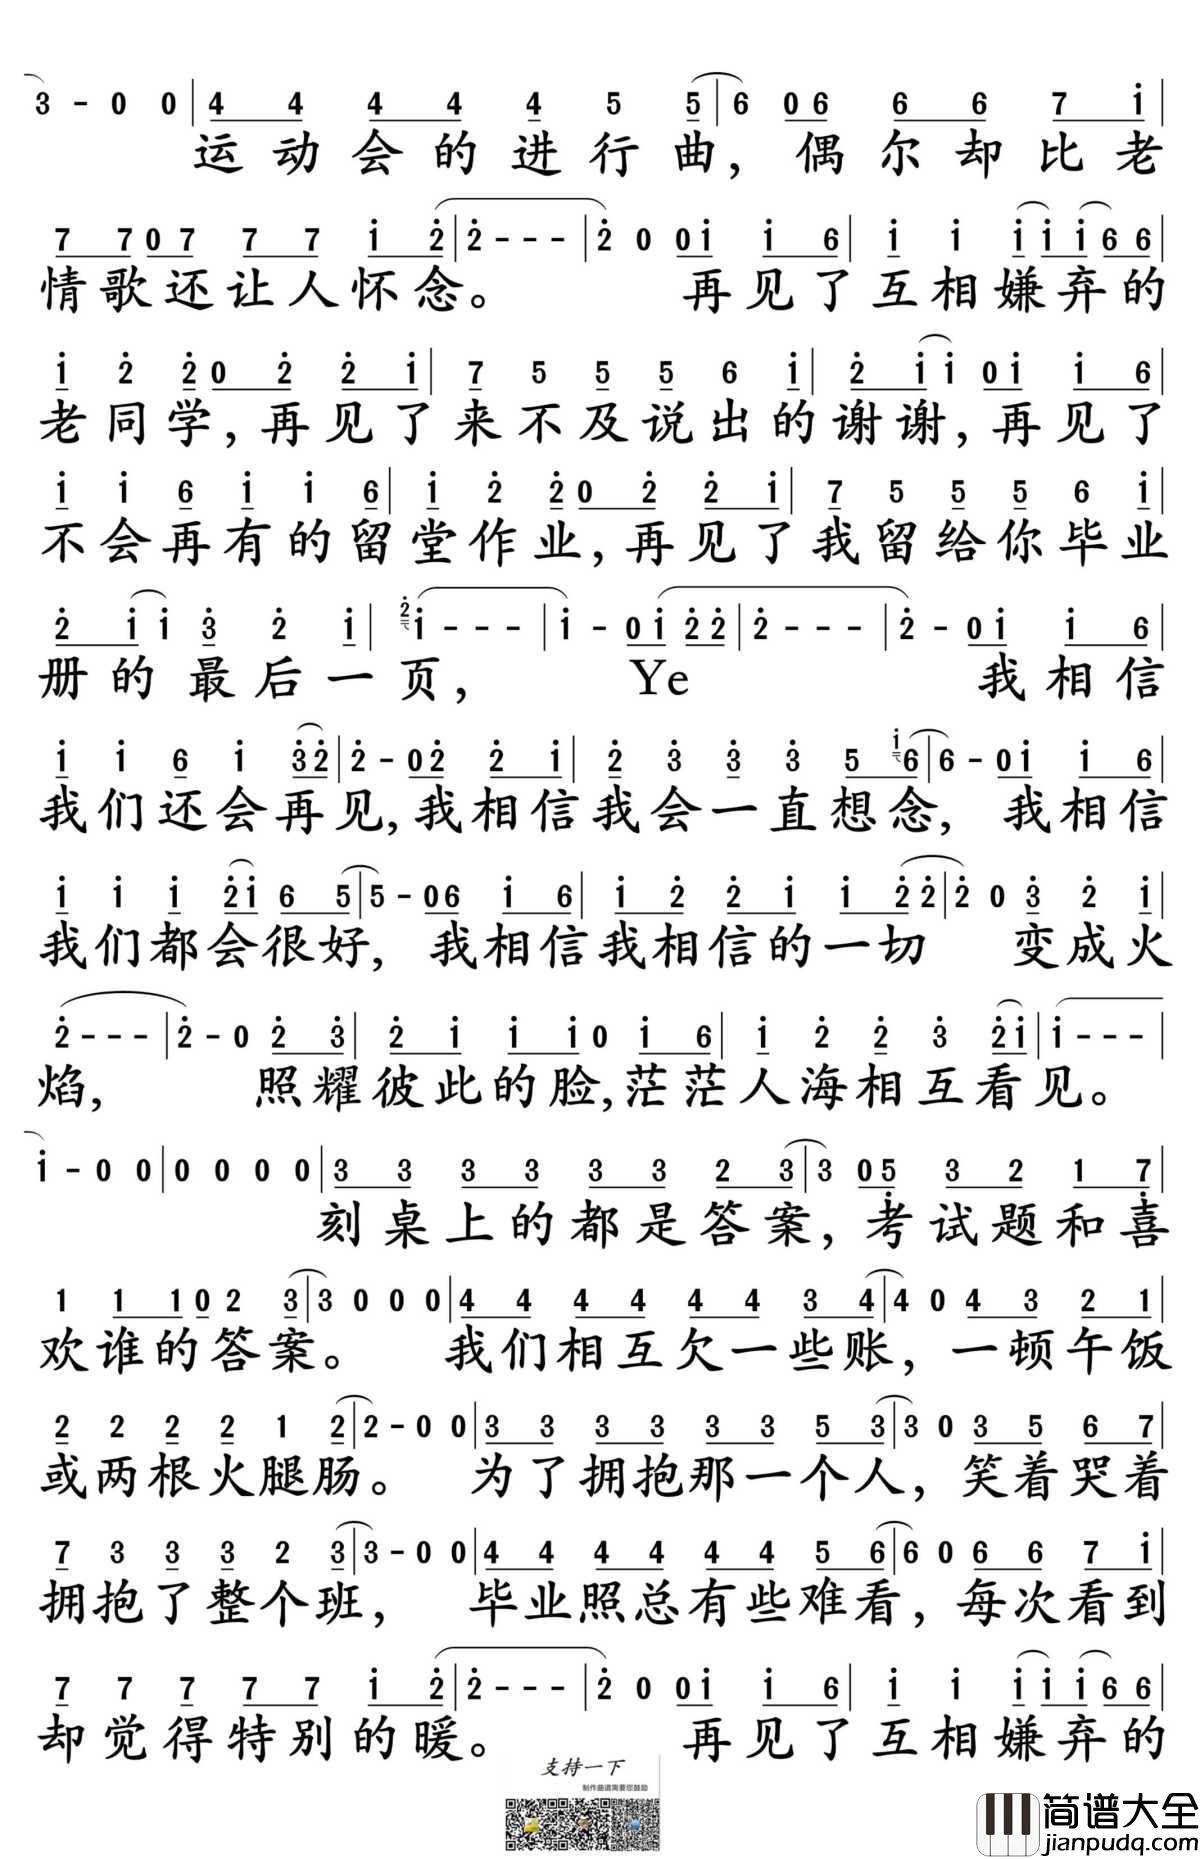 3 - 0 0 | 4 4 4 4 4 5 5 | 6 06 6 6 7 i |
运动会的进行曲，偶尔却比老
7 7 0 7 7 7 i 2 | 2 - - - | 2 0 0i i 6 | i i i i i 6 6 |
情歌还让人怀念。 再见了互相嫌弃的
i 2 2 0 2 2 i | 7 5 5 5 6 i | 2 i i 0i i 6 |
老同学，再见了来不及说出的谢谢，再见了
i i 6 i i 6 | i 2 2 0 2 2 i | 7 5 5 5 6 i |
不会再有的留堂作业，再见了我留给你毕业
2 i i 3 2 i | 2 i - - - | i - 0 i 2 2 | 2 - - - | 2 - 0i i 6 |
册的最后一页， Ye 我相信
i i 6 i 3 2 | 2 - 02 2 i | 2 3 3 3 5 i 6 | 6 - 0i i 6 |
我们还会再见，我相信我会一直想念，我相信
i i i 2 i 6 5 | 5 - 06 i 6 | i 2 2 i i 2 2 | 2 0 3 2 i |
我们都会很好，我相信我相信的一切 变成火
2 - - - | 2 - 0 2 3 | 2 i i i 0 i 6 | i 2 2 3 2 i | i - - - |
焰， 照耀彼此的脸，茫茫人海相互看见。
i - 0 0 | 0 0 0 0 | 3 3 3 3 3 3 2 3 | 3 05 3 2 1 7 |
刻桌上的都是答案，考试题和喜
1 1 1 0 2 3 | 3 0 0 0 | 4 4 4 4 4 4 3 4 | 4 0 4 3 2 1 |
欢谁的答案。 我们相互欠一些账，一顿午饭
2 2 2 2 1 2 | 2 - 0 0 | 3 3 3 3 3 3 5 3 | 3 0 3 5 6 7 |
或两根火腿肠。 为了拥抱那一个人，笑着哭着
7 3 3 3 2 3 | 3 - 0 0 | 4 4 4 4 4 4 5 6 | 6 0 6 6 7 i |
拥抱了整个班， 毕业照总有些难看，每次看到
7 7 7 7 7 i 2 | 2 - - - | 2 0 0i i 6 | i i i i i 6 6 |
却觉得特别的暖。 再见了互相嫌弃的
支持一下
制作曲谱需要您鼓励
简谱大全
jianpudq.com